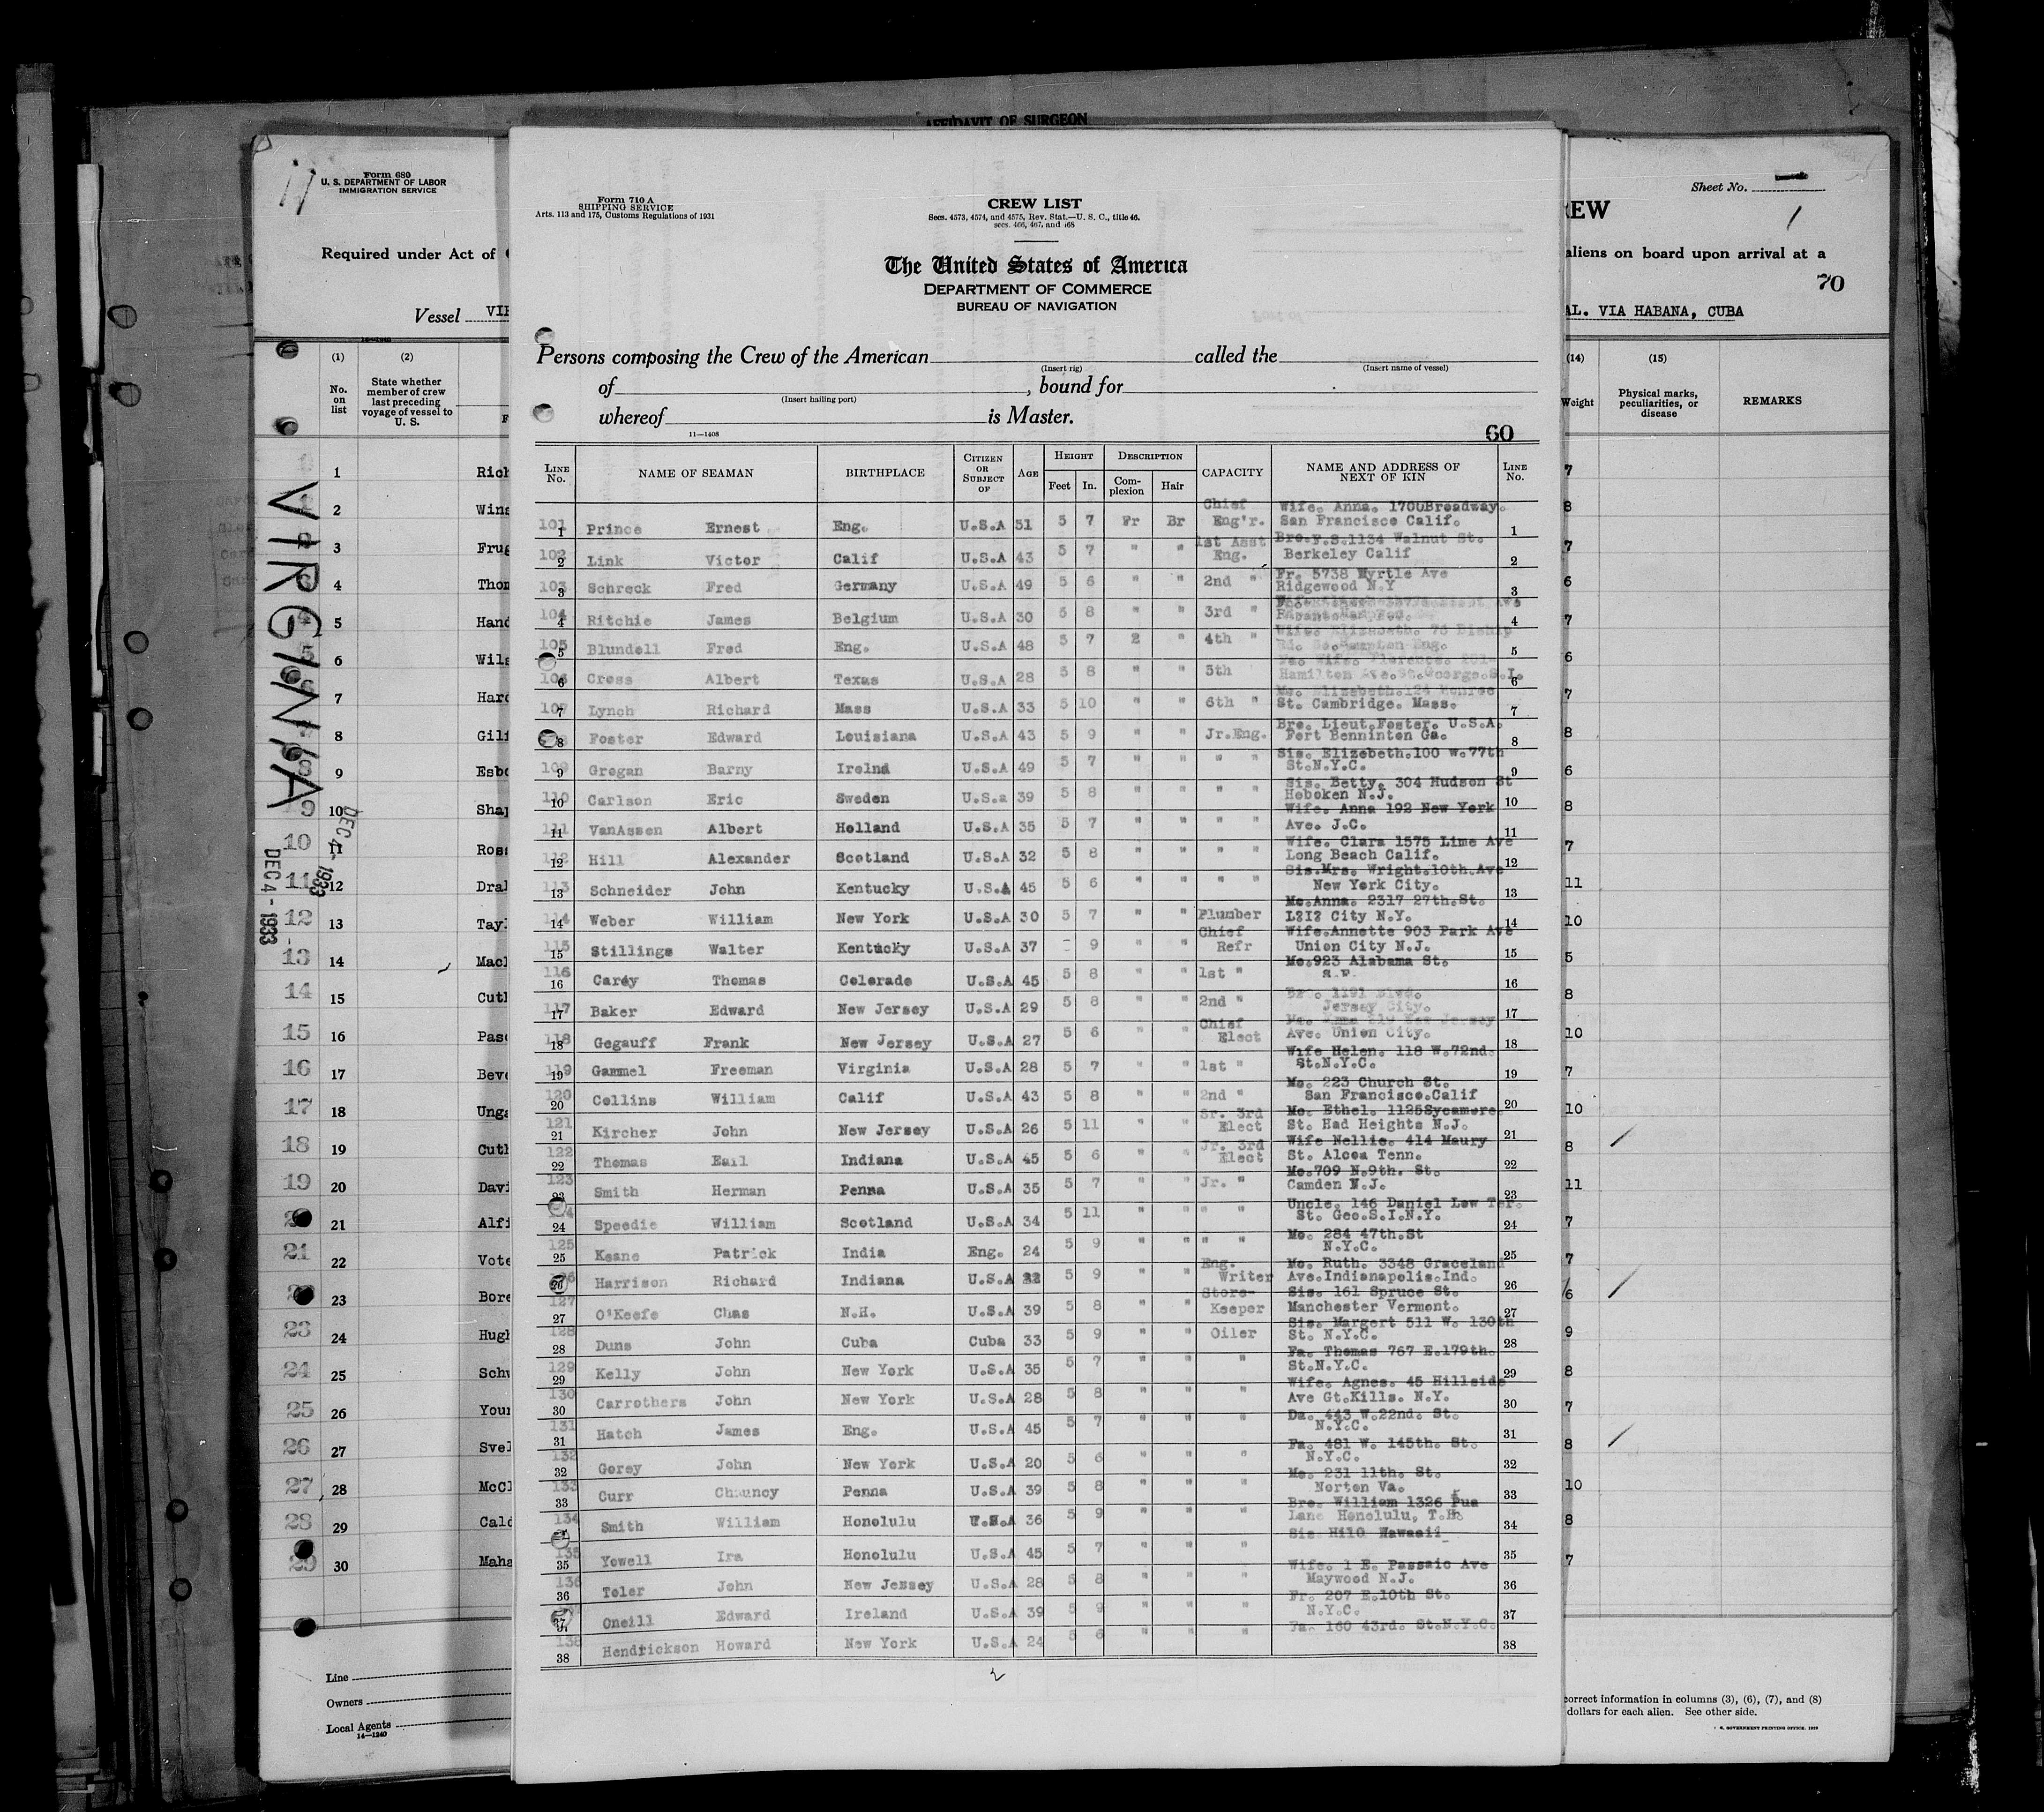 AFFIDAVIT OF SURGEON
11
Form 680
U. S. DEPARTMENT OF LABOR
IMMIGRATION SERVICE
Required under Act of
Vessel VIR
(1) (2)
No. on list
State whether member of crew last preceding voyage of vessel to U. S.
VIRGINIA
DEC 4 - 1933
DEC 4 - 1933
1 Rich
2 Wins
3 Frug
4 Thom
5 Hand
6 Wils
7 Hard
8 Gili
9 Esbo
10 Shap
11 Ross
12 Dral
13 Tayl
14 Macl
15 Cutl
16 Pasc
17 Beve
18 Unga
19 Cuth
20 Davi
21 Alfi
22 Vote
23 Bore
24 Hugh
25 Schw
26 Your
27 Svel
28 McCl
29 Cald
30 Maha
Line
Owners
Local Agents
14—1240
Form 710 A
SHIPPING SERVICE
Arts. 113 and 175, Customs Regulations of 1931
CREW LIST
Secs. 4573, 4574, and 4575, Rev. Stat.—U. S. C., title 46.
secs. 466, 467, and 468
The United States of America
DEPARTMENT OF COMMERCE
BUREAU OF NAVIGATION
Persons composing the Crew of the American called the
(Insert rig) (Insert name of vessel)
of , bound for
(Insert hailing port)
whereof is Master.
11—1408
60
LINE No. NAME OF SEAMAN BIRTHPLACE CITIZEN OR SUBJECT OF AGE HEIGHT Feet In. DESCRIPTION Complexion Hair CAPACITY NAME AND ADDRESS OF NEXT OF KIN LINE No.
101 1 Prince Ernest Eng. U.S.A 51 5 7 Fr Br Chief Eng'r. Wife. Anna. 1700Broadway. San Francisco Calif. 1
102 2 Link Victor Calif U.S.A 43 5 7 " " 1st Asst Eng. Bro.F.S.1134 Walnut St. Berkeley Calif 2
103 3 Schreck Fred Germany U.S.A 49 5 6 " " 2nd " Fr. 5738 Myrtle Ave Ridgewood N.Y 3
104 4 Ritchie James Belgium U.S.A 30 5 8 " " 3rd " 4
105 5 Blundell Fred Eng. U.S.A 48 5 7 2 " 4th " Wife. Elizabeth. 76 Bishop Rd. So.Hampton Eng. 5
6 Cross Albert Texas U.S.A 28 5 8 " " 5th Wife. Florence. Hamilton Ave.St.George.S.I. 6
107 7 Lynch Richard Mass U.S.A 33 5 10 " " 6th " Mo. Elizabeth.124 Monroe St. Cambridge. Mass. 7
8 Foster Edward Louisiana U.S.A 43 5 9 " " Jr.Eng. Bro. Lieut.Foster. U.S.A. Fort Benninton Ga. 8
109 9 Grogan Barny Irelnd U.S.A 49 5 7 " " " " Sis. Elizebeth.100 W.77th St.N.Y.C. 9
110 10 Carlson Eric Sweden U.S.a 39 5 8 " " " " Sis. Betty. 304 Hudson St Hoboken N.J. 10
111 11 VanAssen Albert Holland U.S.A 35 5 7 " " " " Wife. Anna 192 New York Ave. J.C. 11
112 12 Hill Alexander Scotland U.S.A 32 5 8 " " " " Wife. Clara 1575 Lime Ave Long Beach Calif. 12
113 13 Schneider John Kentucky U.S.A 45 5 6 " " " " Sis.Mrs. Wright.10th.Ave New York City. 13
114 14 Weber William New York U.S.A 30 5 7 " " Plumber Mo.Anna. 2317 27th.St. L?I? City N.Y. 14
115 15 Stillings Walter Kentucky U.S.A 37 9 " " Chief Refr Wife.Annette 903 Park Ave Union City N.J. 15
116 16 Carey Thomas Colorado U.S.A 45 5 8 " " 1st " Mo.923 Alabama St. 16
117 17 Baker Edward New Jersey U.S.A 29 5 8 " " 2nd " Jersey City. 17
118 18 Gegauff Frank New Jersey U.S.A 27 5 6 " " Chief Elect Ave. Union City. 18
119 19 Gammel Freeman Virginia U.S.A 28 5 7 " " 1st " Wife Helen. 118 W.72nd. St.N.Y.C. 19
120 20 Collins William Calif U.S.A 43 5 8 " " 2nd " Mo. 223 Church St. San Francisco.Calif 20
121 21 Kircher John New Jersey U.S.A 26 5 11 " " Sr. 3rd Elect Mo. Ethel. 1125Sycamore St. Had Heights N.J. 21
122 22 Thomas Earl Indiana U.S.A 45 5 6 " " Jr. 3rd Elect Wife Nellie. 414 Maury St. Alcoa Tenn. 22
123 23 Smith Herman Penna U.S.A 35 5 7 " " Jr. " Mo.709 N.9th. St. Camden N.J. 23
24 Speedie William Scotland U.S.A 34 5 11 " " " " Uncle. 146 Daniel Low Ter. St. Geo.S.I.N.Y. 24
125 25 Keane Patrick India Eng. 24 5 9 " " " " Mo. 284 47th.St N.Y.C. 25
26 Harrison Richard Indiana U.S.A 5 9 " " Eng. Writer Mo. Ruth. 3348 Graceland Ave.Indianapolis.Ind. 26
127 27 O'Keefe Chas N.H. U.S.A 39 5 8 " " Store-Keeper Sis. 161 Spruce St. Manchester Vermont. 27
128 28 Duns John Cuba Cuba 33 5 9 " " Oiler Sis. Margert 511 W. 130th St. N.Y.C. 28
129 29 Kelly John New York U.S.A 35 5 7 " " " Fa. Thomas 767 E.179th. St.N.Y.C. 29
130 30 Carrothers John New York U.S.A 28 5 8 " " " Wife. Agnes. 45 Hillside Ave Gt.Kills. N.Y. 30
131 31 Hatch James Eng. U.S.A 45 5 7 " " " Da. 443 W.22nd. St. N.Y.C. 31
132 32 Gorey John New York U.S.A 20 5 6 " " " Fa. 481 W. 145th. St. N.Y.C. 32
133 33 Curr Chauncy Penna U.S.A 39 5 8 " " " Mo. 231 11th. St. Norton Va. 33
134 Smith William Honolulu U.S.A 36 5 9 " " " Bro. William 1326 Pua Lane Honolulu, T.H. 34
135 35 Yowell Ira Honolulu U.S.A 45 5 7 " " " Sis. Hilo Hawaii 35
136 36 Toler John New Jersey U.S.A 28 5 8 " " " Wife. 1 E. Passaic Ave Maywood N.J. 36
37 Oneill Edward Ireland U.S.A 39 5 9 " " " Fr. 207 E.10th St. N.Y.C. 37
138 38 Hendrickson Howard New York U.S.A 24 5 6 " " " Fa. 160 43rd. St.N.Y.C. 38
2
Sheet No.
1
EW
aliens on board upon arrival at a
70
AL. VIA HABANA, CUBA
(14) (15)
Weight
Physical marks, peculiarities, or disease
REMARKS
7
8
7
6
7
6
7
8
6
8
7
11
10
5
8
10
7
10
8
11
7
7
6
9
8
7
8
10
8
7
correct information in columns (3), (6), (7), and (8)
dollars for each alien. See other side.
U. S. GOVERNMENT PRINTING OFFICE. 1929